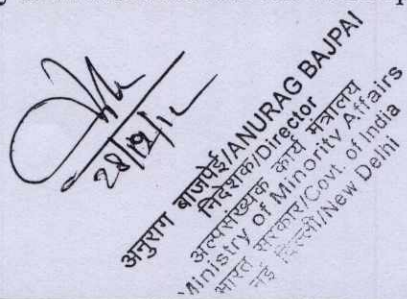 28/9/12
अनुराग बाजपेई/ANURAG BAJPAI
निदेशक/Director
अल्पसंख्यक कार्य मंत्रालय
Ministry of Minority Affairs
भारत सरकार/Govt. of India
नई दिल्ली/New Delhi